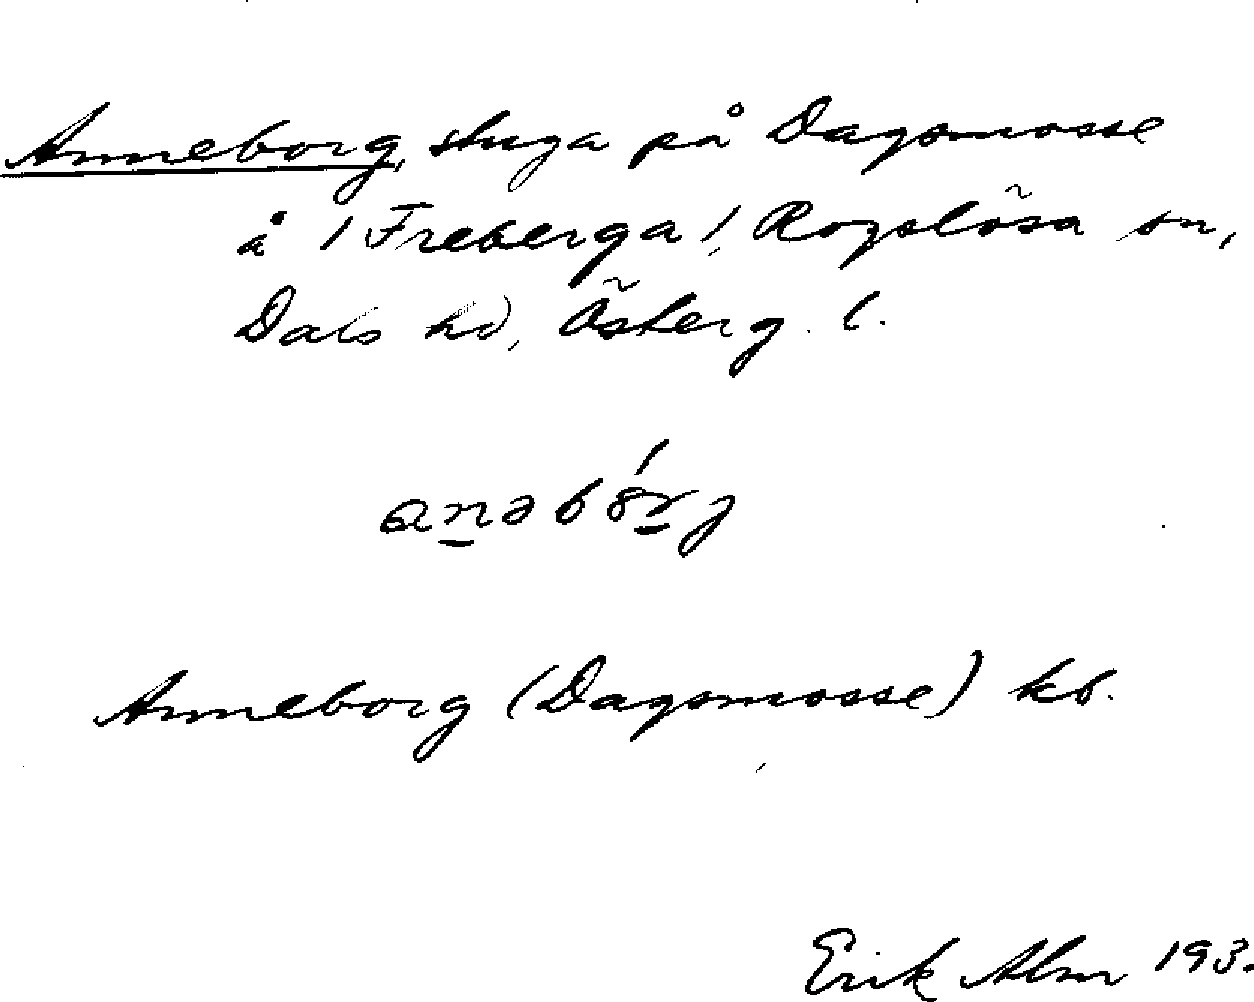 Anneborg, stuga på Dagsmosse
å / Freberga /, Rogslösa sn,
Dals hd, Österg. l.
Anneborg (Dagsmosse) kb.
Erik Alm 193.